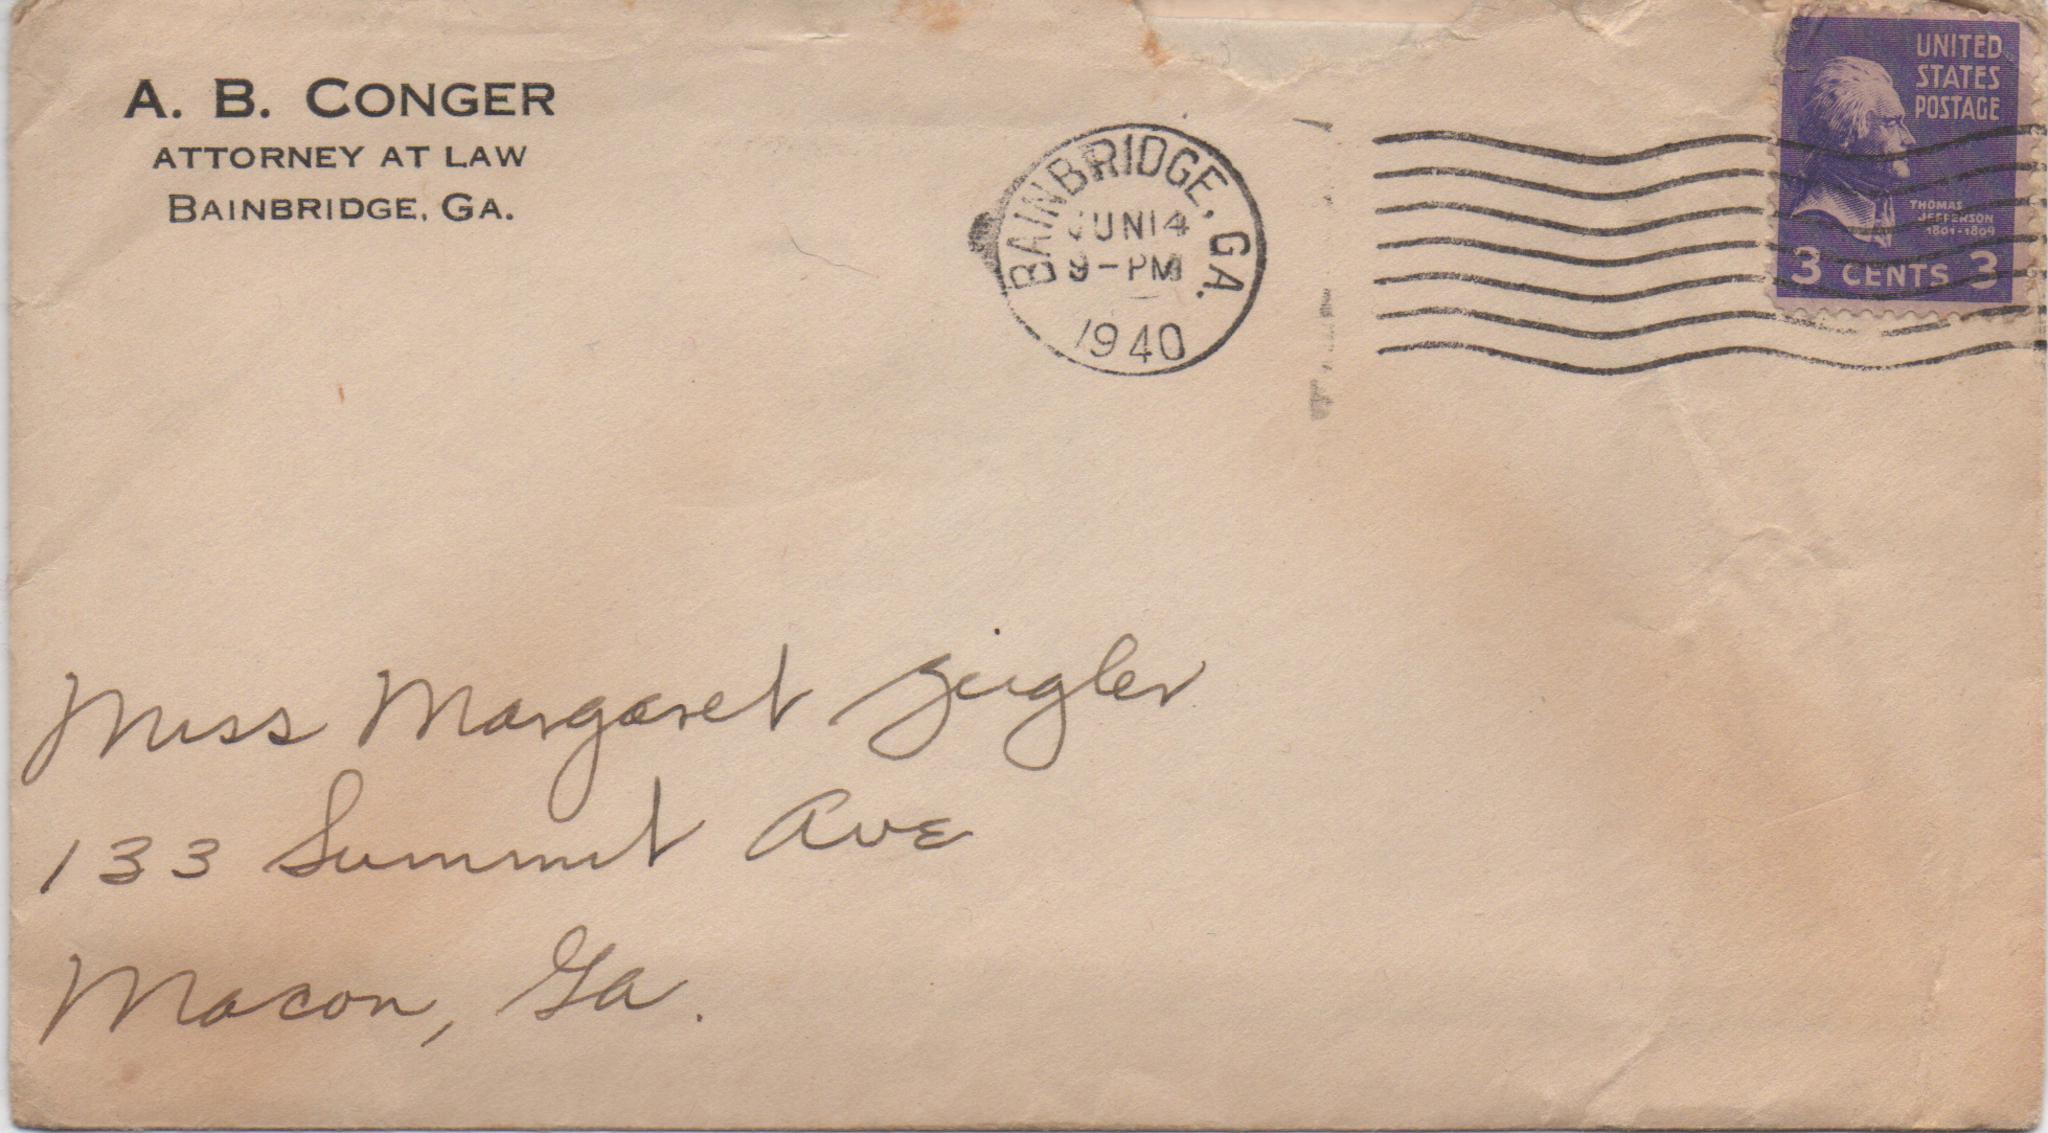 A. B. CONGER
ATTORNEY AT LAW
BAINBRIDGE, GA.
BAINBRIDGE, GA.
JUN 14
9-PM
1940
UNITED
STATES
POSTAGE
THOMAS
JEFFERSON
1801-1809
3 CENTS 3
Miss Margaret Zeigler
133 Summit Ave
Macon, Ga.